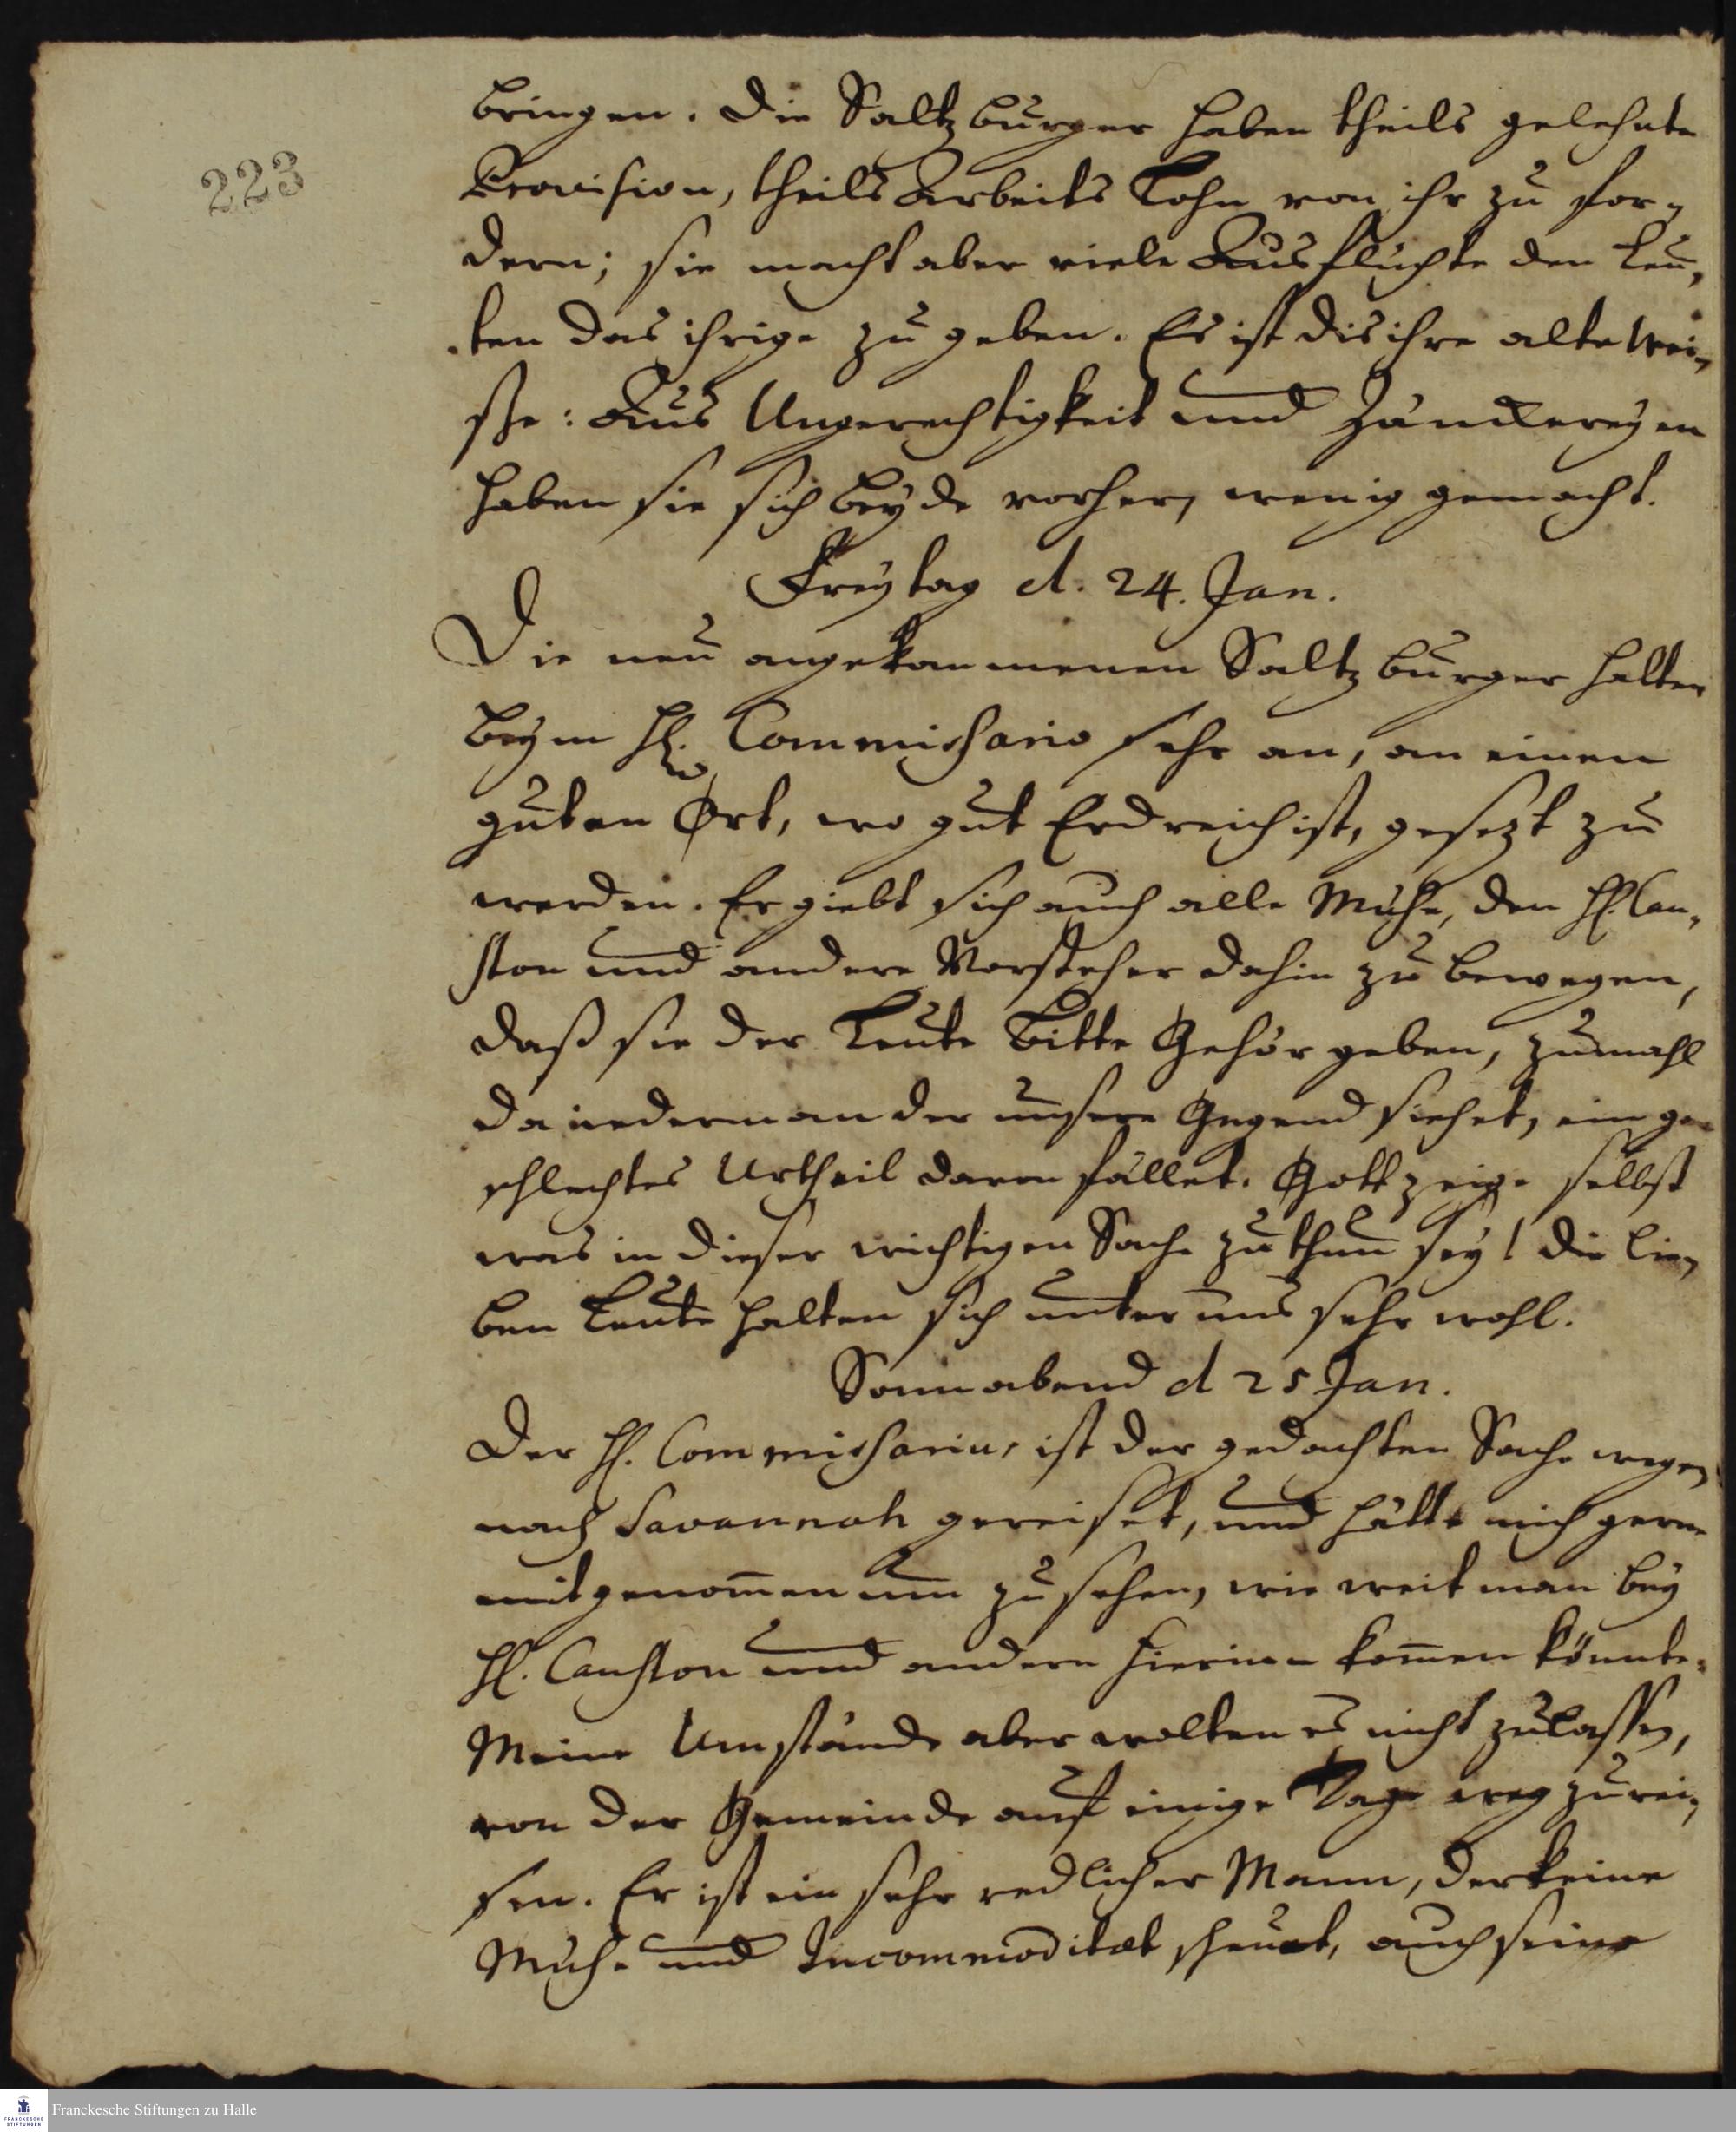 223
bringen. Die Saltzburger haben theils gelehnte
Provision, theils Arbeits Lohn von ihr zu for-
dern; sie macht aber viele Ausflüchte den Leu-
ten das ihrige zu geben. Es ist dis ihre alte Wei-
se: Aus Ungerechtigkeit und Zänckereyen
haben sie sich beyde vorher, wenig gemacht.
Freytag d. 24. Jan.
Die neu angekommenen Saltzburger halten
beym H. Commissario sehr an, an einen
guten Ort, wo gut Erdreich ist, gesezt zu
werden. Er giebt sich auch alle Mühe, den H. Cau-
ston und andere Vorsteher dahin zu bewegen,
daß sie der Leute Bitte Gehör geben, zumahl
da iederman der unsere Gegend siehet, ein gar
schlechtes Urtheil davon fället. Gott zeige selbst
was in dieser wichtigen Sache zu thun sey! Die lie-
ben Leute halten sich unter uns sehr wohl.
Sonnabend d 25 Jan.
Der H. Commissarius ist der gedachten Sache wegen
nach Savannah gereiset, und hätte mich gerne
mitgenom̄en um zu sehen, wie weit man bey
H. Causton und andern hierinne kom̄en könnte.
Meine Umstände aber wolten es nicht zulassen,
von der Gemeinde auf einige Tage weg zu rei-
sen. Er ist ein sehr redlicher Mann, der keine
Mühe und Incommoditæt scheuet, auch seine
Franckesche Stiftungen zu Halle
FRANCKESCHE
STIFTUNGEN